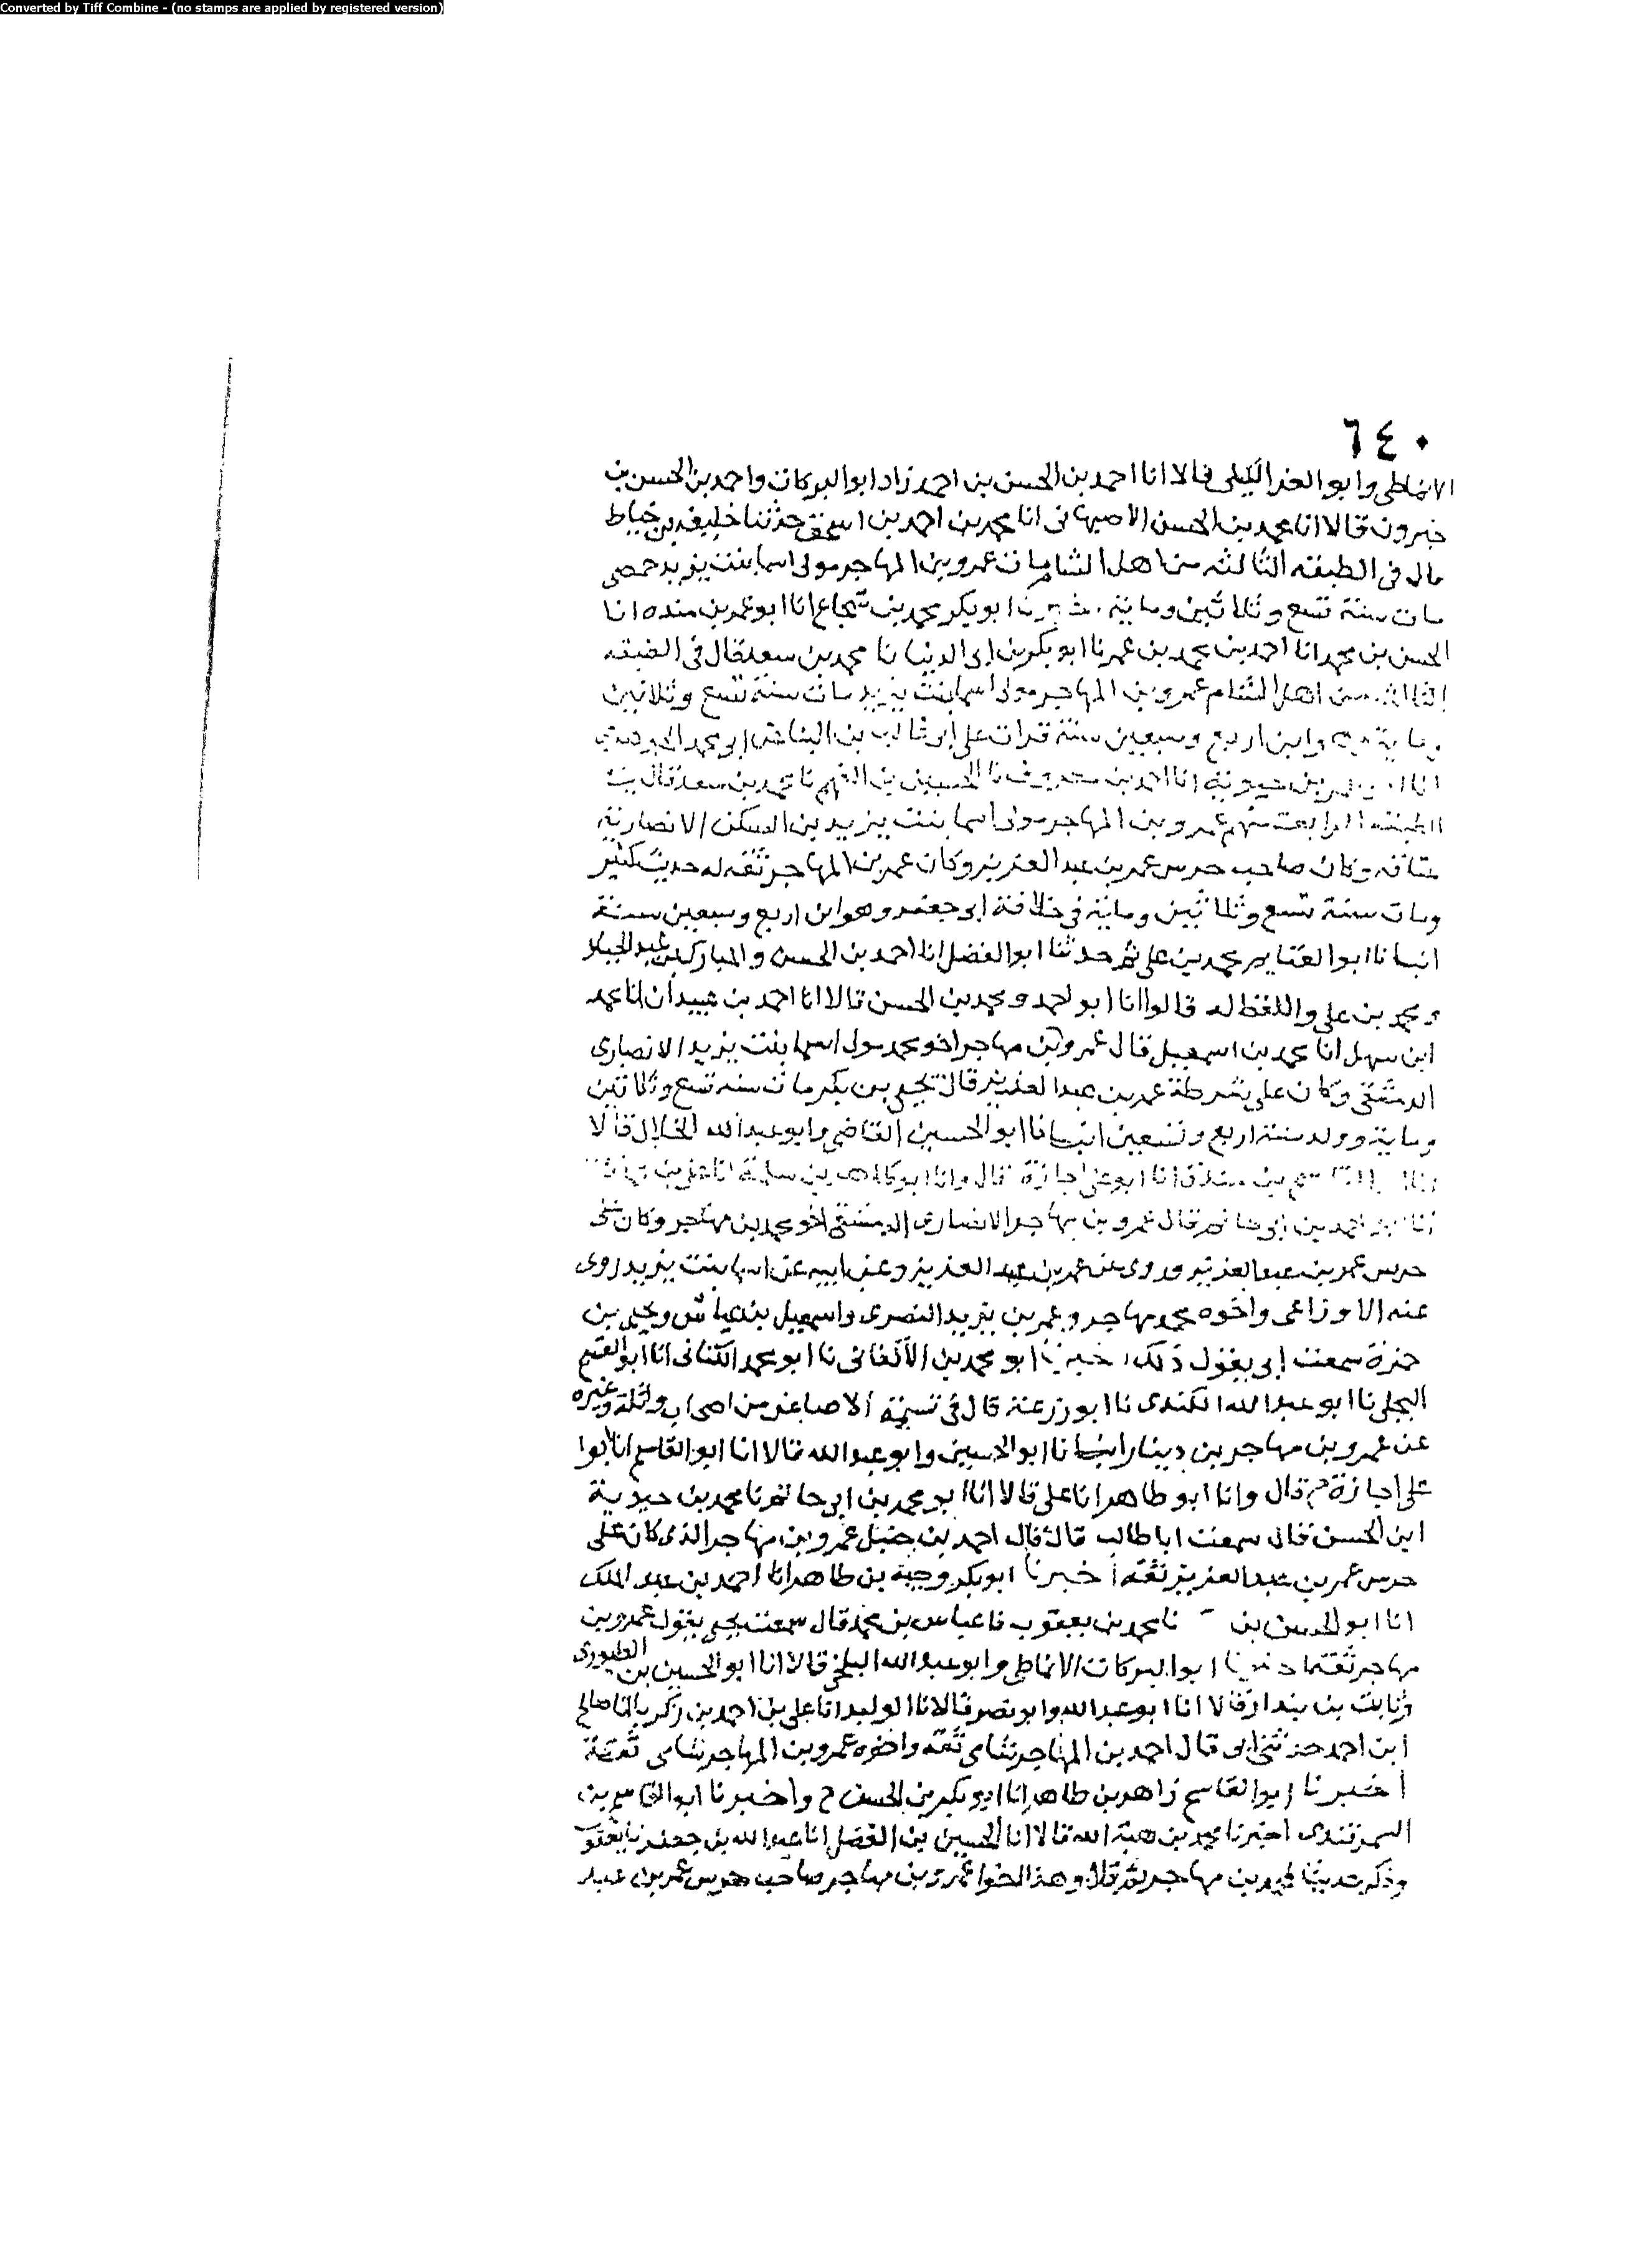 Converted by Tiff Combine - (no stamps are applied by registered version)
٦٤٠
الانماطي وابو العز الكيلي قالا انا احمد بن الحسن بن احمد زاد ابو البركات واحمد بن الحسن بن
خيرون قالا انا محمد بن الحسن الاصبهاني انا محمد بن احمد بن اسحق حدثنا خليفه بن خياط
قال في الطبقه الثالثه من اهل الشامات عمرو بن المهاجر مولى اسما بنت يزيد حمصي
مات سنة تسع وثلاثين وماية ابو بكر محمد بن شجاع انا ابو عمرو بن منده انا
الحسن بن محمد انا احمد بن محمد بن عمر نا ابو بكر بن ابي الدنيا نا محمد بن سعد قال في الطبقه
الثالثه من اهل الشام عمرو بن المهاجر مولى اسما بنت يزيد مات سنة تسع وثلاثين
وماية وابن اربع وسبعين سنة قرات على ابي غالب بن البنا عن ابي محمد الجوهري
انا بن حيوية انا احمد بن معروف نا الحسين بن الفهم نا محمد بن سعد قال
الطبقه الرابعه منهم عمرو بن المهاجر مولى اسما بنت يزيد بن السكن الانصارية
عتاقه وكان صاحب حرس عمر بن عبد العزيز وكان عمرو بن المهاجر ثقه له حديث كثير
ومات سنة تسع وثلاثين وماية في خلافة ابي جعفر وهو ابن اربع وسبعين سنة
انبانا ابو الغنايم محمد بن علي ثم حدثنا ابو الفضل انا احمد بن الحسن والمبارك بن عبد الجبار
ومحمد بن علي واللفظ له قالوا انا ابو احمد ومحمد بن الحسن قالا انا احمد بن عبيدان انا محمد
ابن سهل انا محمد بن اسمعيل قال عمرو بن مهاجر اخو محمد مولى اسما بنت يزيد الانصاري
الدمشقي وكان على شرطة عمر بن عبد العزيز قال يحيى بن بكر مات سنه تسع وثلاثين
وماية وولد سنة اربع وتسعين انبانا ابو الحسين القاضي وابو عبد الله الخلال قالا
بن منده انا ابو علي اجازة قال وانا ابو طاهر بن سلمة انا علي بن
انا احمد بن ابي حاتم قال عمرو بن مهاجر الانصاري الدمشقي اخو محمد بن مهاجر وكان على
حرس عمر بن عبد العزيز وروى عن عمر بن عبد العزيز وعن ابيه عن اسما بنت يزيد روى
عنه الاوزاعي واخوه محمد مهاجر وعمر بن يزيد النصري واسمعيل بن عياش ويحيى بن
حمزة سمعت ابي يقول ذلك ابو محمد بن الاكفاني نا ابو محمد الكتاني انا ابو القسم
البجلي نا ابو عبد الله الكندي نا ابو زرعة قال في تسمية الاصاغر من اصحاب واثلة وغيره
عن عمرو بن مهاجر بن دينار انبانا ابو الحسين وابو عبد الله قالا انا ابو القاسم انا ابوا
علي اجازة ح قال وانا ابو طاهر انا علي قالا انا ابو محمد بن ابي حاتم نا محمد بن حيوية
ابن الحسن قال سمعت ابا طالب قال قال احمد بن حنبل عمرو بن مهاجر الذي كان على
حرس عمر بن عبد العزيز ثقه اخبرنا ابو بكر وجيه بن طاهر انا احمد بن عبد الملك
انا ابو الحسن بن نا محمد بن يعقوب نا عباس بن محمد قال سمعت يحيى يقول عمرو بن
مهاجر ثقة ابو البركات الانماطي وابو عبد الله البلخي قالا انا ابو الحسين بن الطيوري
وثابت بن بندار قالا انا ابو عبد الله وابو نصر قالا نا الوليد انا علي بن احمد بن زكريا نا صالح
ابن احمد حدثني ابي قال احمد بن المهاجر شامي ثقه واخوه عمرو بن المهاجر شامي ثقة
اخبرنا ابو القاسم زاهر بن طاهر انا ابو بكر بن الحسن ح واخبرنا ابو القاسم بن
السمرقندي اخبرنا محمد بن هبة الله قالا انا الحسين بن الفضل انا عبد الله بن جعفر نا يعقوب
وذكر حديثا لمحمد بن مهاجر ثم قال وهذا اخوا عمرو بن مهاجر صاحب حرس عمر بن عبد